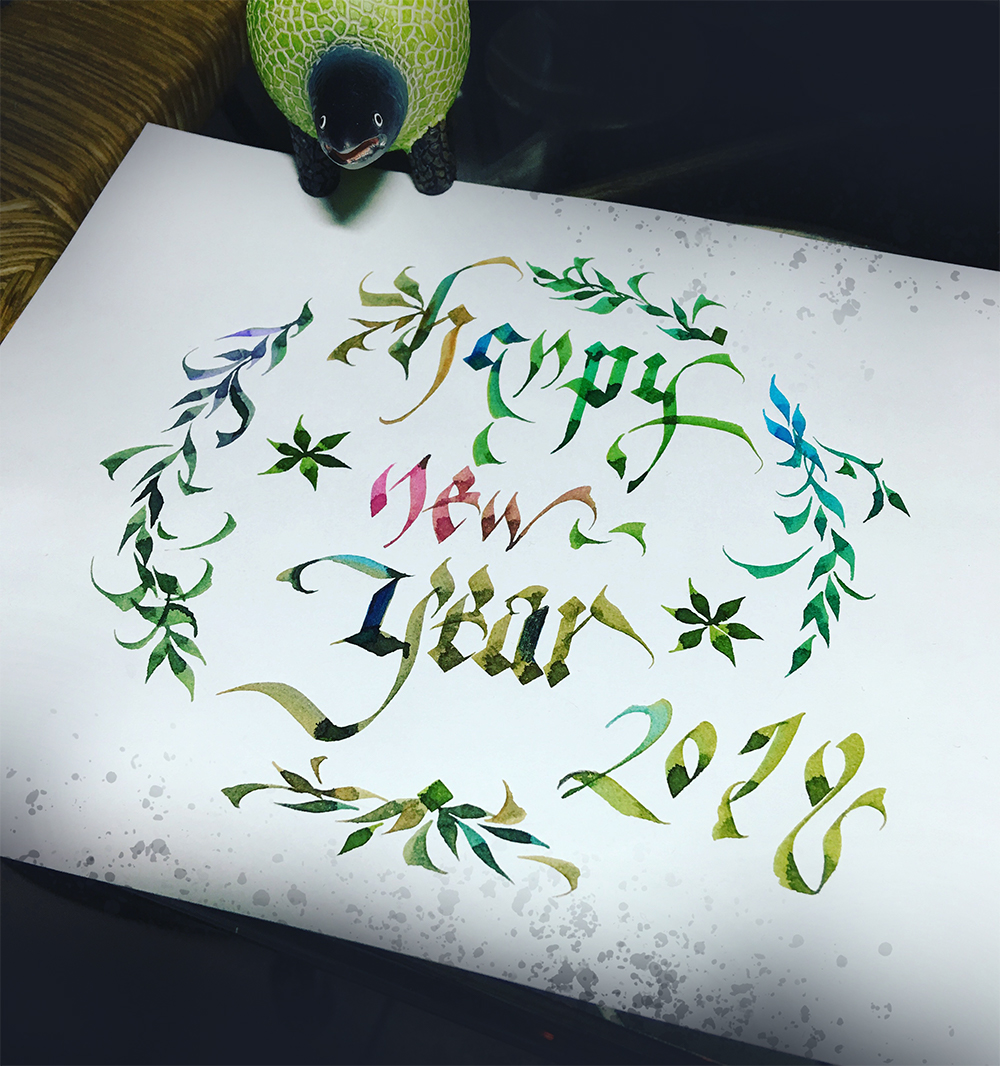 happy
new
Year
2018